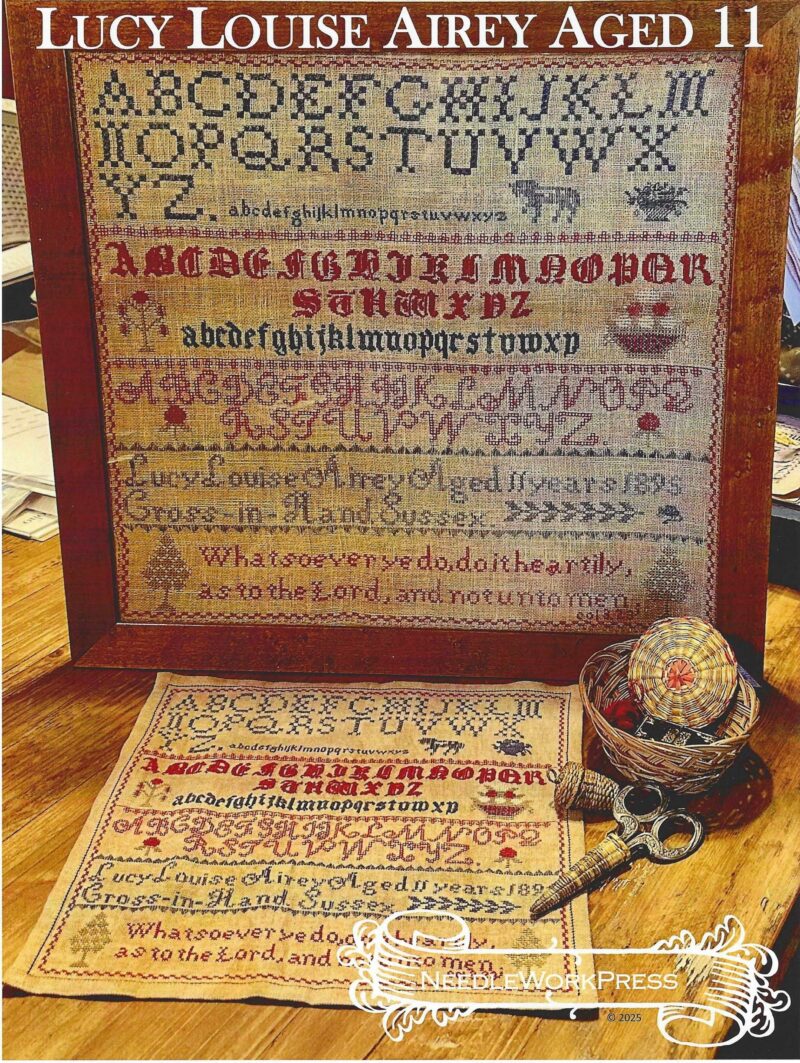 LUCY LOUISE AIREY AGED 11
ABCDEFGHIJKLM
NOPQRSTUVWX
YZ. abcdefghijklmnopqrstuvwxyz
ABCDEFGHIKLMNOPQR
STUWXYZ
abcdefghijklmnopqrstvwxy
ABCDEFGHIJKLMNOPQ
RSTUVWXYZ.
Lucy Louise Airey Aged 11 years 1895
Cross-in-Hand Sussex.
Whatsoever ye do, do it heartily,
as to the Lord, and not unto men
ABCDEFGHIJKLM
NOPQRSTUVWX
YZ. abcdefghijklmnopqrstuvwxyz
ABCDEFGHIKLMNOPQR
STUWXYZ
abcdefghijklmnopqrstvwxy
ABCDEFGHIJKLMNOPQ
RSTUVWXYZ.
Lucy Louise Airey Aged 11 years 189
Cross-in-Hand Sussex.
Whatsoever ye do, do heartily,
as to the Lord, and unto men
NEEDLEWORKPRESS
© 2025